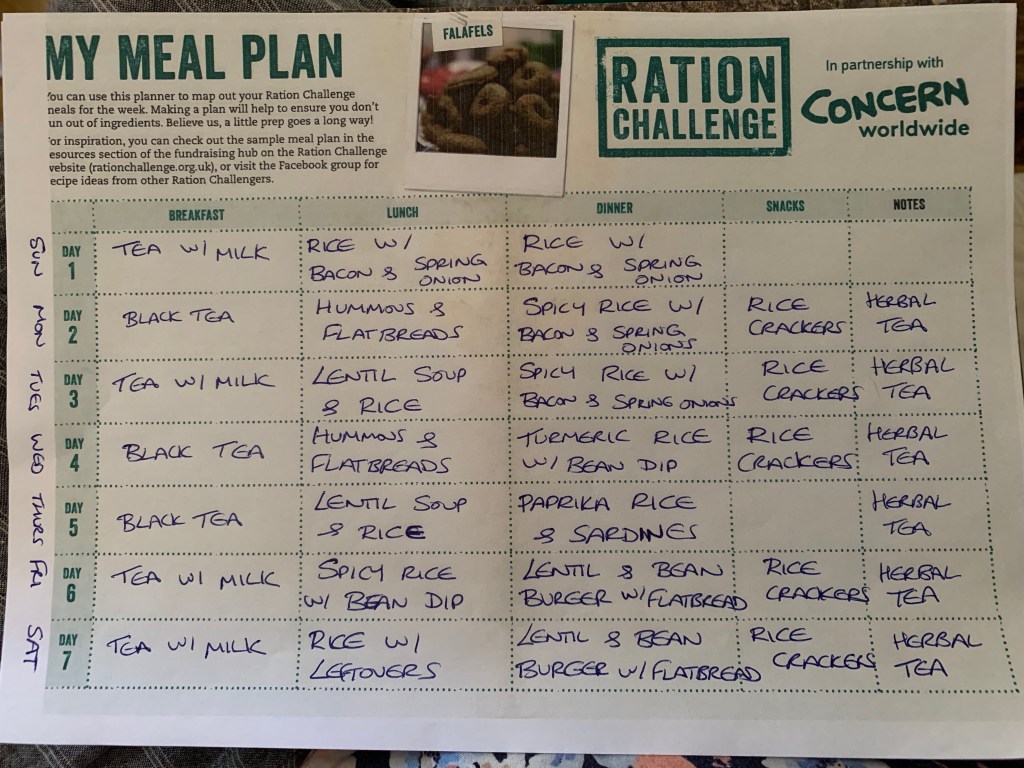 FALAFELS
MY MEAL PLAN
You can use this planner to map out your Ration Challenge
meals for the week. Making a plan will help to ensure you don't
un out of ingredients. Believe us, a little prep goes a long way!
or inspiration, you can check out the sample meal plan in the
esources section of the fundraising hub on the Ration Challenge
website (rationchallenge.org.uk), or visit the Facebook group for
ecipe ideas from other Ration Challengers.
RATION
CHALLENGE
In partnership with
CONCERN
worldwide
BREAKFAST LUNCH DINNER SNACKS NOTES
SUN
DAY
1
TEA W/ MILK
RICE W/
BACON & SPRING
ONION
RICE W/
BACON & SPRING
ONION
MON
DAY
2
BLACK TEA
HUMMOUS &
FLATBREADS
SPICY RICE W/
BACON & SPRING
ONIONS
RICE
CRACKERS
HERBAL
TEA
TUES
DAY
3
TEA W/ MILK
LENTIL SOUP
& RICE
SPICY RICE W/
BACON & SPRING ONIONS
RICE
CRACKERS
HERBAL
TEA
WED
DAY
4
BLACK TEA
HUMMOUS &
FLATBREADS
TURMERIC RICE
W/ BEAN DIP
RICE
CRACKERS
HERBAL
TEA
THURS
DAY
5
BLACK TEA
LENTIL SOUP
& RICE
PAPRIKA RICE
& SARDINES
HERBAL
TEA
FRI
DAY
6
TEA W/ MILK
SPICY RICE
W/ BEAN DIP
LENTIL & BEAN
BURGER W/ FLATBREAD
RICE
CRACKERS
HERBAL
TEA
SAT
DAY
7
TEA W/ MILK
RICE W/
LEFTOVERS
LENTIL & BEAN
BURGER W/ FLATBREAD
RICE
CRACKERS
HERBAL
TEA